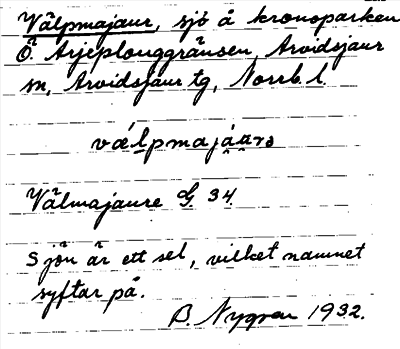 Välpmajaur, sjö å kronoparken
Ö. Arjeplouggränsen, Arvidsjaur
sn, Arvidsjaur tg, Norrb. l.
Välmajaure G 34
Sjön är ett sel, vilket namnet
syftar på.
B. Nygren 1932.